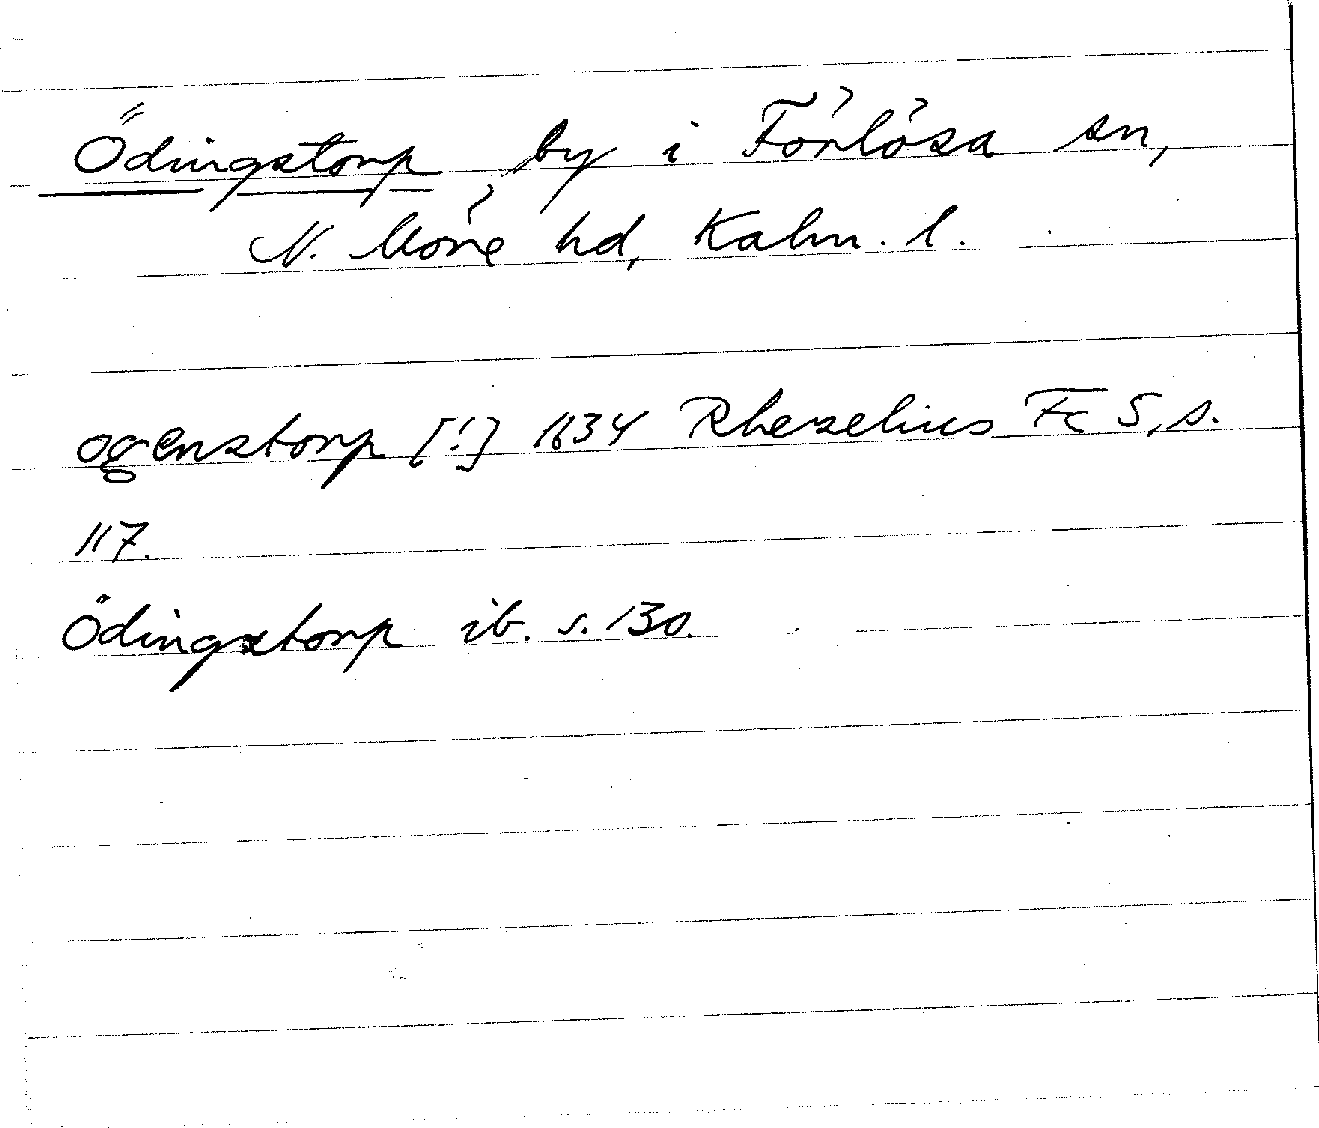 Ödingstorp, by i Förlösa sn,
N. Möre hd, Kalm. l.
ogenstorp [!] 1634 Rhezelius Fc 5, s.
117.
Ödingstorp ib. s. 130.